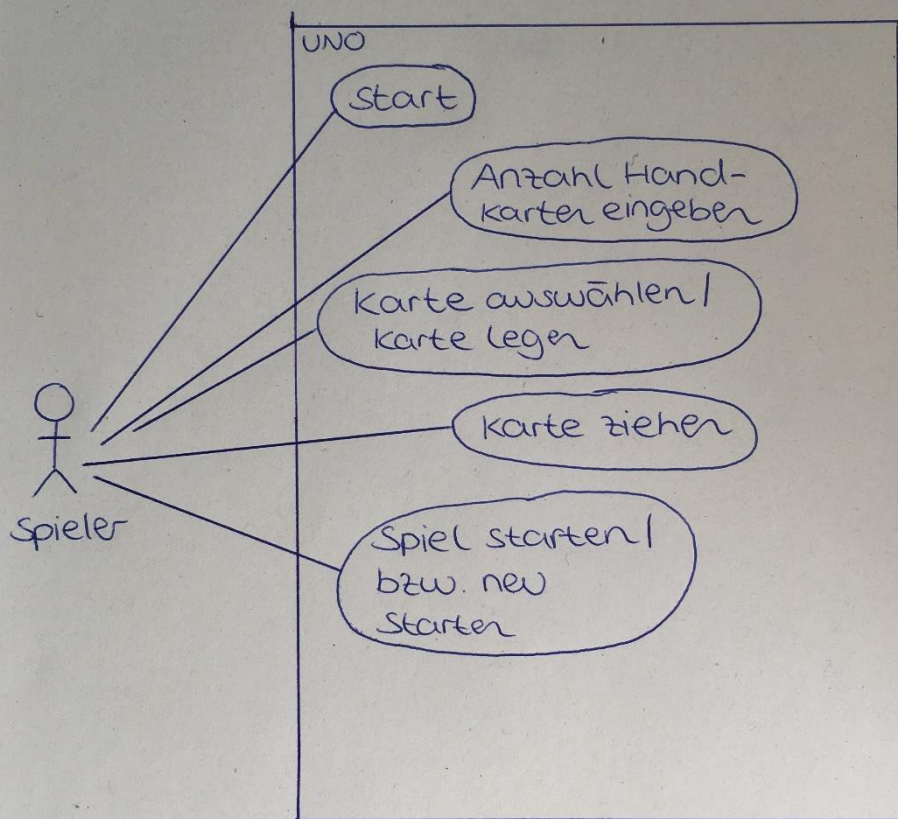 UNO
Start
Anzahl Hand-
karten eingeben
Karte auswählen/
Karte legen
Karte ziehen
Spieler
Spiel starten/
bzw. neu
starten